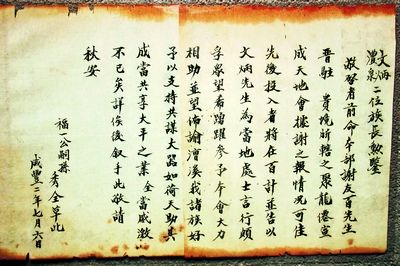 文炳
濃泉二位族長歉鑒
敬啓者前命本部謝友百先生
晋駐 貴境所轄之聚龍僊宣
成天地會據謝之報情况可佳
先後投入者將在百計並告以
文炳先生為當地處士言行頗
孚眾望希踴躍參予本會大力
相助並望佈諭漕溪我諸族好
予以支持共謀大器如荷天助其
成當共享太平之業 全當感激
不已矣詳俟後叙手此敬請
秋安
福一公嗣孫 秀全草此
咸豐二年七月六日